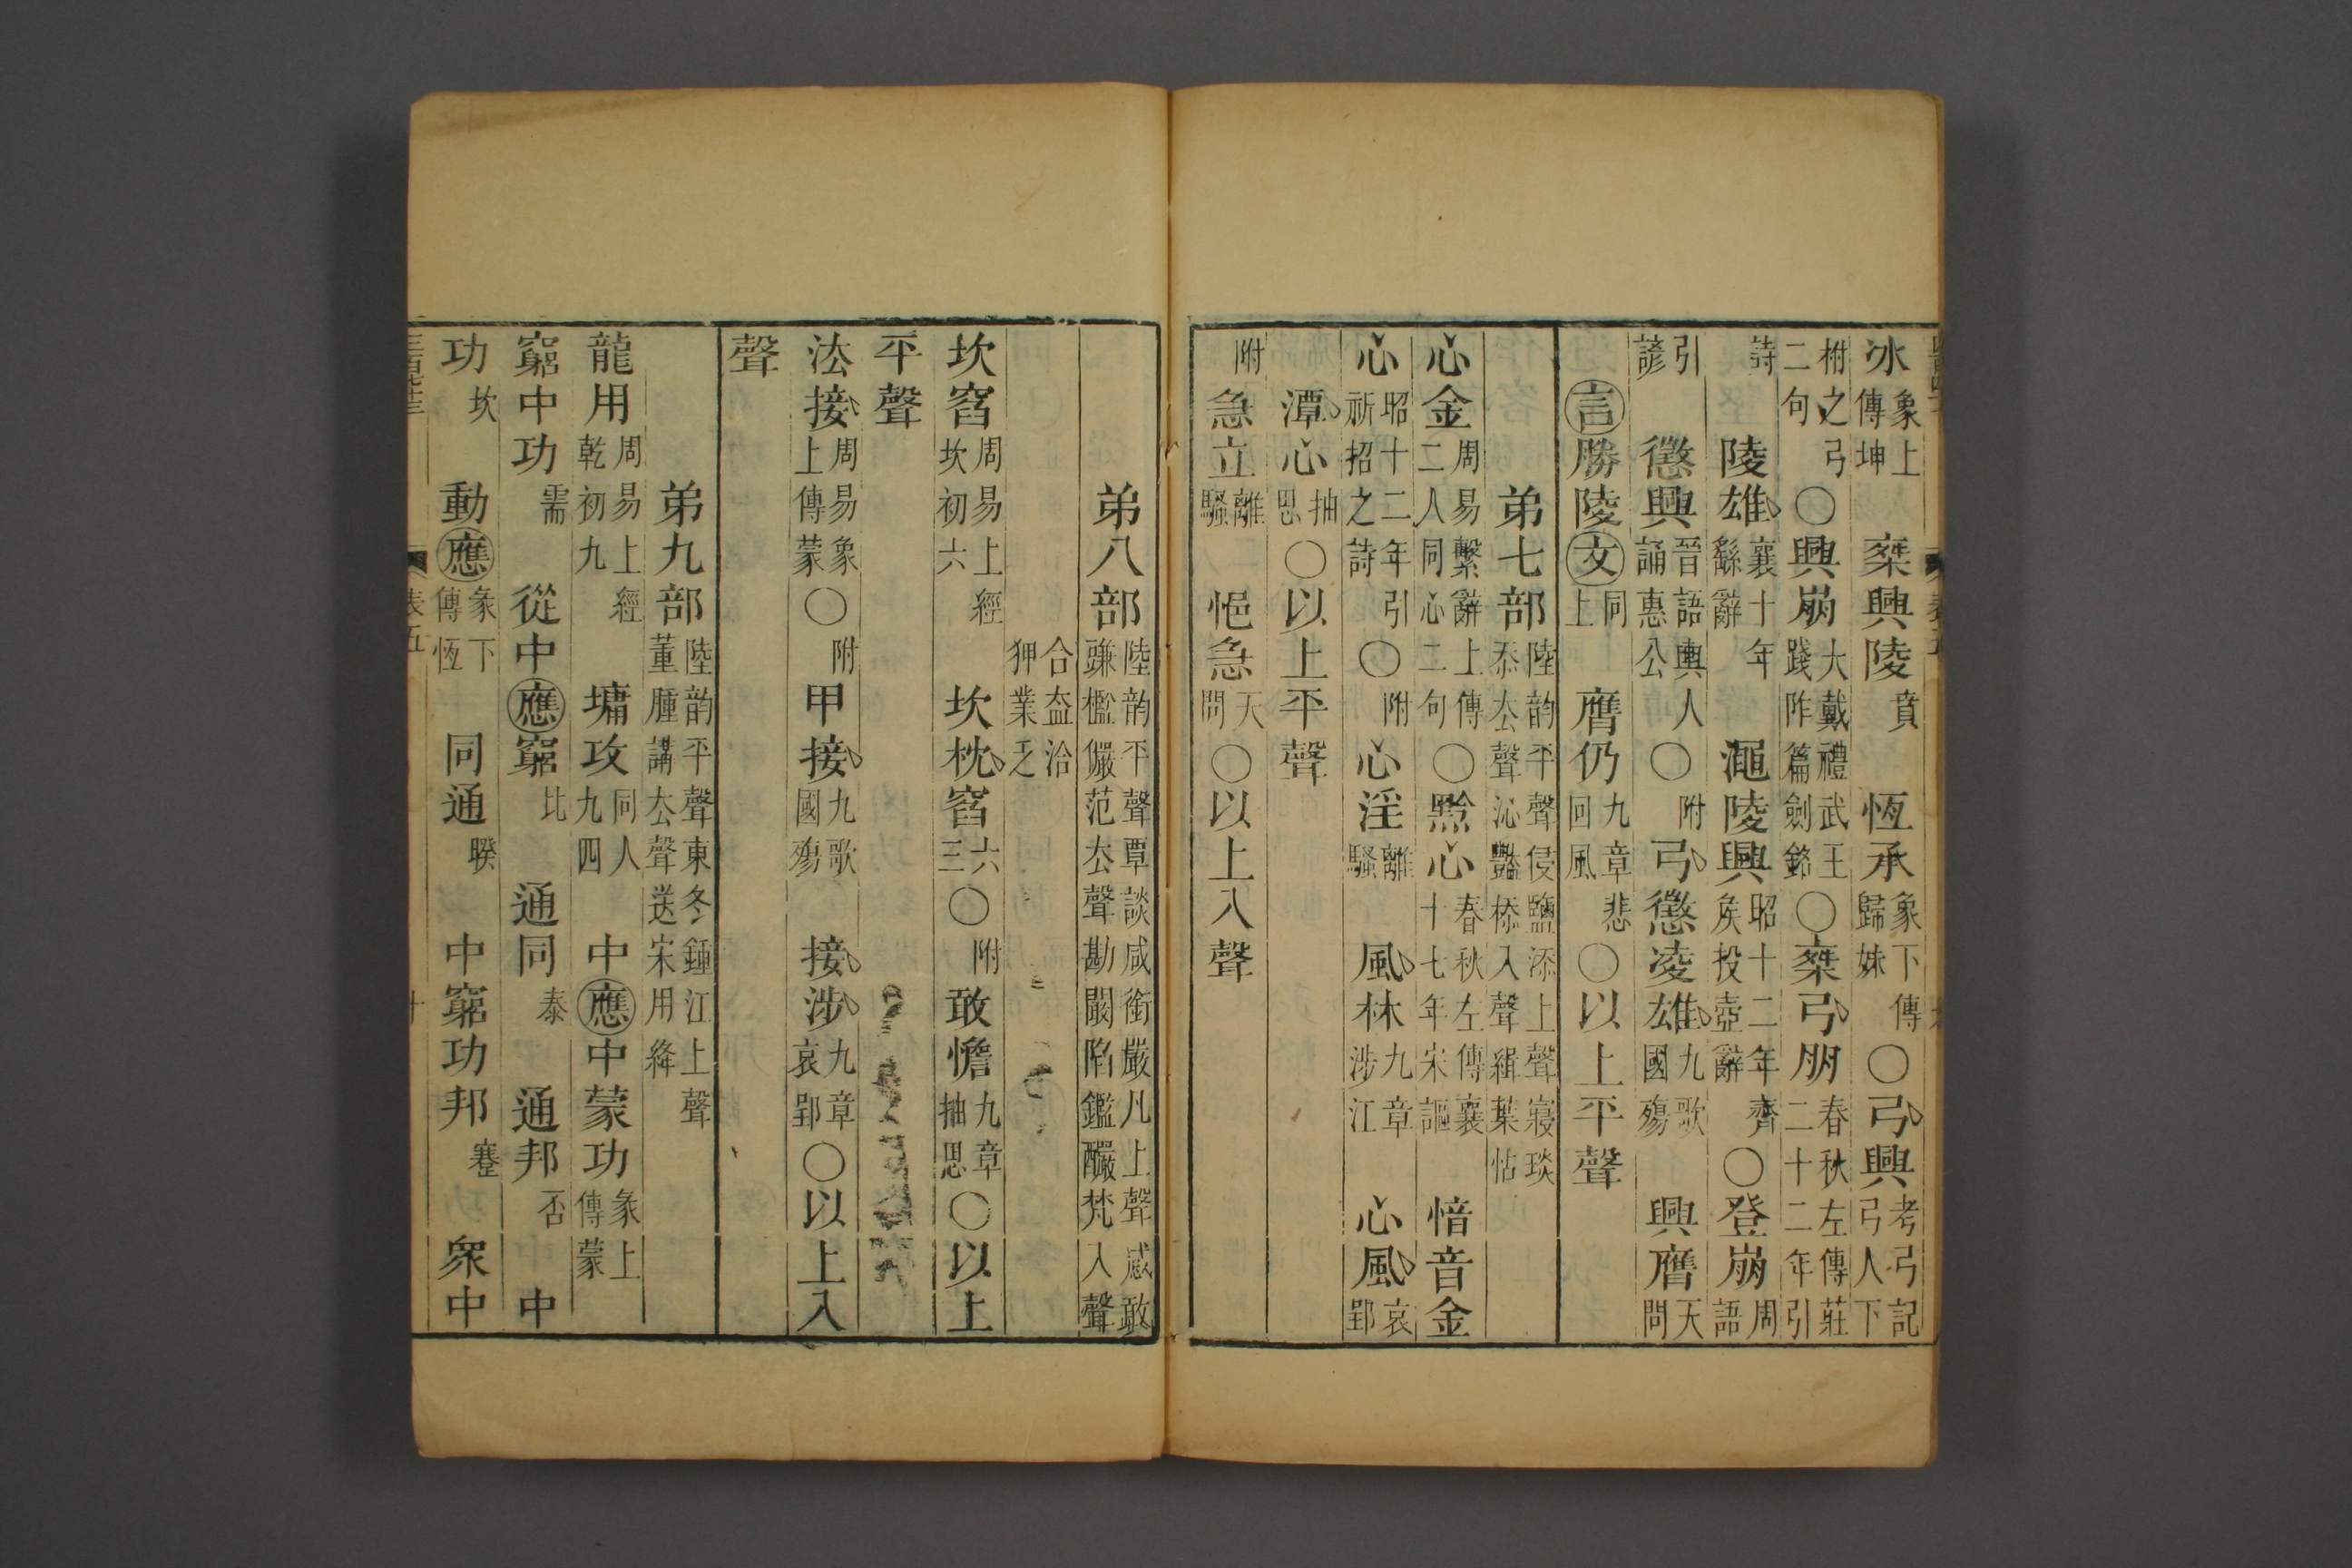 冰象上傳坤 桊興陵賁 恆承象下傳歸妹〇弓興考弓記弓人下
柎之弓二句〇興崩大戴禮武王踐阼篇劍銘〇桊弓朋春秋左傳莊二十二年引
詩 陵雄襄十年繇辭 澠陵興昭十二年齊矦投壺辭〇登崩周語
引諺 懲興晉語輿人誦惠公〇附弓懲凌雄九歌國殤 興膺天問
言勝陵文同上 膺仍九章悲回風〇以上平聲
弟七部陸韵平聲侵鹽添上聲寑琰忝去聲沁豔㮇入聲緝葉怗
心金周易繫辭上傳二人同心二句〇黔心春秋左傳襄十七年宋謳 愔音金
心昭十二年引祈招之詩〇附心淫離騷 風林九章涉江 心風哀郢
潭心抽思〇以上平聲
附急立離騷 悒急天問〇以上入聲
弟八部陸韵平聲覃談咸銜嚴凡上聲感敢豏檻儼范去聲勘闞陷鑑釅梵入聲
合盍洽狎業乏
坎窞周易上經坎初六 坎枕窞六三〇附敢憺九章抽思〇以上
平聲
法接周易象上傳蒙〇附甲接九歌國殤 接涉九章哀郢〇以上入
聲
弟九部陸韵平聲東冬鍾江上聲董腫講去聲送宋用絳
龍用周易上經乾初九 墉攻同人九四 中應中蒙功彖上傳蒙
窮中功需 從中應窮比 通同泰 通邦否 中
功坎 動應彖下傳恆 同通睽 中窮功邦蹇 眾中
表五